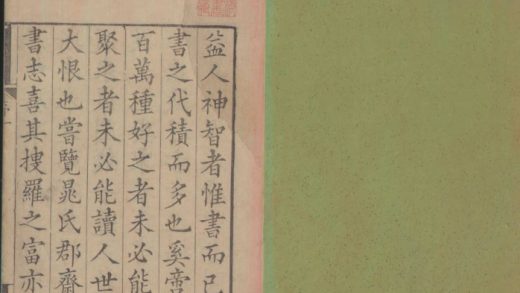 益人神智者惟書而已
書之代積而多也奚啻
百萬種好之者未必能
聚之者未必能讀人世
大恨也嘗覽晁氏郡齋
書志喜其搜羅之富亦